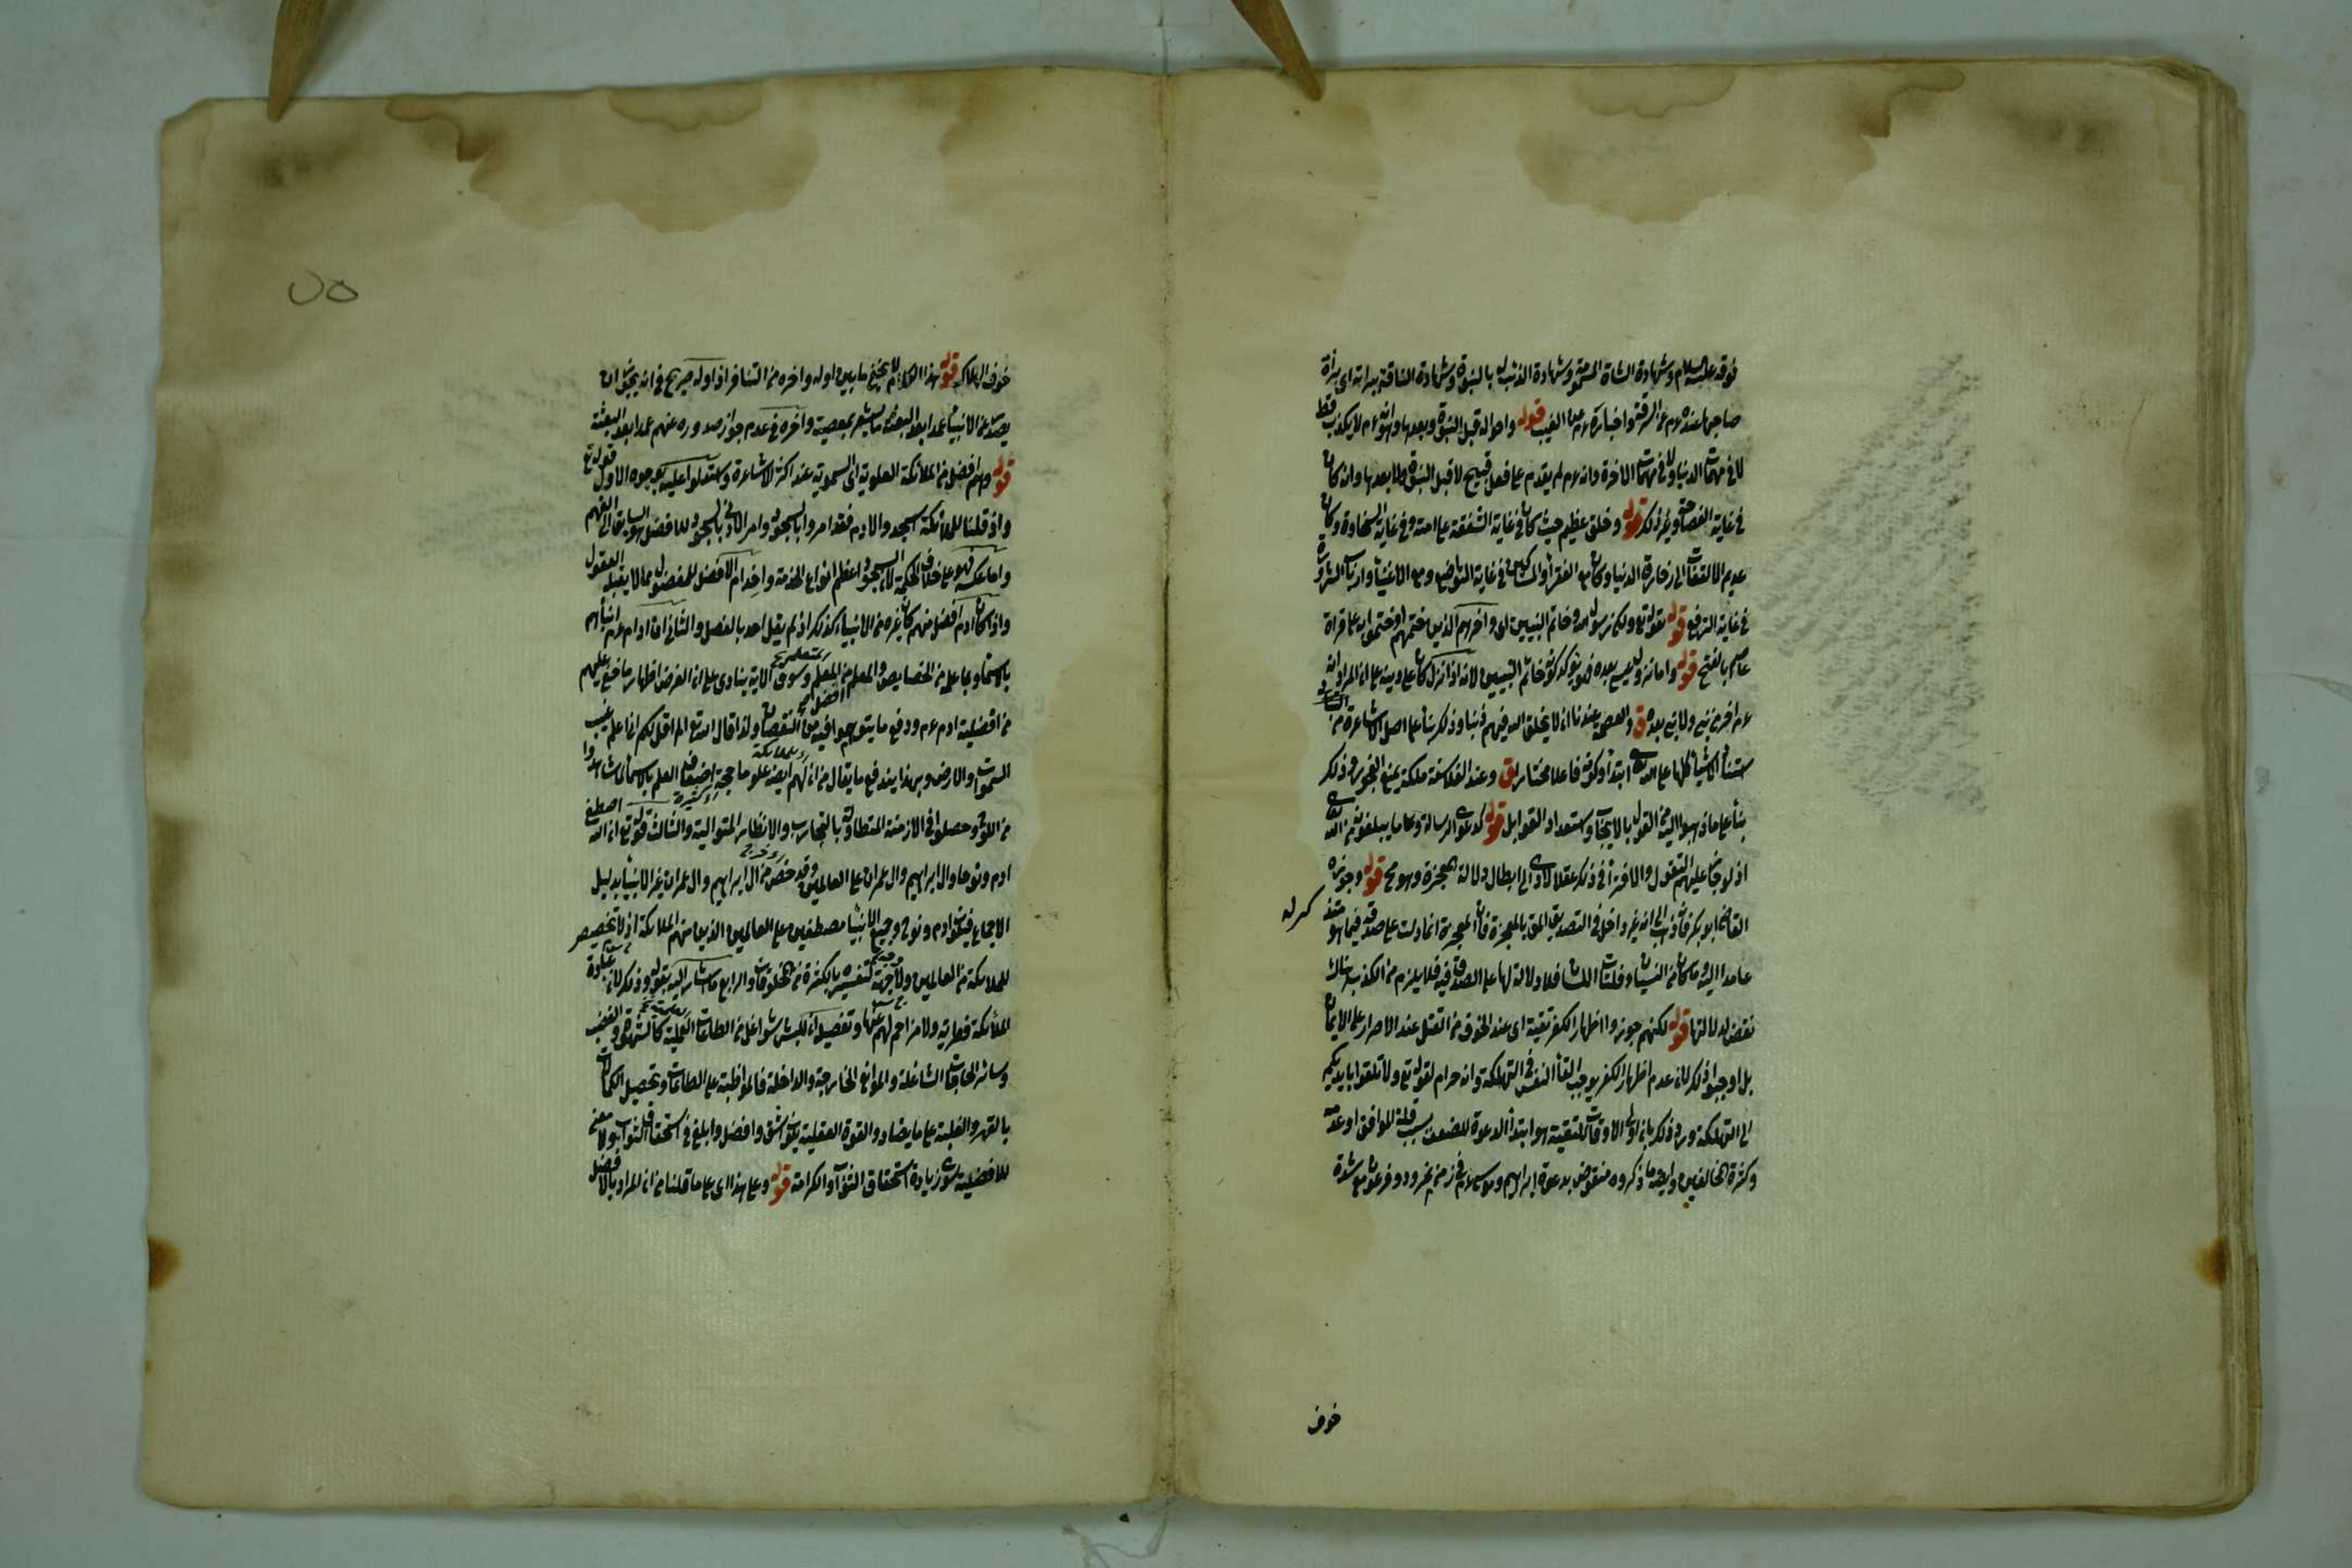 فوقه عليه السلام وشهادة الشاة المسمومة وشهادة الذئب له بالنبوة وشهادة الناقة ببراءته اى براءة
صاحبها عنده عم عن السرقة واخباره عم عن الغيب قوله واحواله قبل النبوة وبعدها وانه عم لا يكذب قط
لا فى مهمات الدنيا ولا فى مهمات الاخرة وانه عم لم يقدم على فعل قبيح لا قبل النبوة ولا بعدها وانه كان
فى غاية الفصاحة وغير ذلك قوله وخلق عظيم حيث كان فى غاية الشفقة على امته وفى غاية السخاوة وكان
عديم الالتفات الى زخارف الدنيا وكان مع الفقراء والمساكين فى غاية التواضع ومع الاغنياء وارباب الثروة
فى غاية الترفع قوله لقوله تع ولكن رسول الله وخاتم النبيين اى واخرهم الذى ختمهم او ختموا به على قراءة
عاصم بالفتح قوله واما نزول عيسى بعده فهو يؤكد كونه خاتم النبيين لانه اذا نزل كان على دينه على ان المراد انه
عم اخر من نبى ولا نبى بعده ق والعصمة عندنا ان لا يخلق الله فيهم ذنبا وذلك بناء على اصل الاشاعرة من
استناد الاشياء كلها على الله تعالى ابتداء وكونه فاعلا مختارا ق وعند الفلاسفة ملكة يمنع الفجور وذلك
بناء على ما ذهبوا اليه من القول بالايجاب واستعداد القوابل قوله كدعوى الرسالة وما يبلغونه من الله تعالى
اذ لو جاز عليهم التقول والافتراء فى ذلك عقلا لادى الى ابطال دلالة المعجزة وهو مح قوله وجوزه
القاضى ابو بكر فانه ذهب الى انه غير داخل فى التصديق المق بالمعجزة فان المعجزة انما دلت على صدقه فيما هو متذكر له
عامدا اليه وما كان من النسيان وفلتات اللسان فلا دلالة لها على الصدق فيه فلا يلزم من الكذب هناك
نقض لدلالتها قوله لكنهم جوزوا اظهار الكفر تقية اى عند الخوف من القتل عند الاصرار على الايمان
بل اوجبوا ذلك لان عدم اظهار الكفر يوجب القاء النفس فى التهلكة وانه حرام لقوله تع ولا تلقوا بايديكم
الى التهلكة ورد ذلك بان اولى الاوقات للتقية هو ابتداء الدعوة للضعف بسبب قلة الموافق او عدمه
وكثرة المخالفين وايضا ما ذكروه منقوض بدعوة ابراهيم وموسى عم فى زمن نمرود وفرعون مع شدة
خوف
خوف الهلاك قوله هذا الكلام لا يخفى ما بين اوله واخره من التنافر اذ اوله صريح فى انه يجوز ان
يصدر عن الانبياء عمدا بعد البعثة ما يشعر بمعصية واخره فى عدم جواز صدوره عنهم عمدا بعد البعثة
قوله وهم افضل من الملائكة العلوية اى السموية عند اكثر الاشاعرة واستدلوا عليه بوجوه الاول قوله تع
واذ قلنا للملائكة اسجدوا لادم فقد امروا بالسجود وامر الادنى بالسجود للافضل هو السابق الى الفهم
واما عكسه فهو على خلاف الحكمة لان السجود اعظم انواع الخدمة واخدام الافضل للمفضول مما لا يقبله العقول
واذا كان ادم افضل منهم كان غيره من الانبياء كذلك اذ لم يقل احد بالفصل والثانى ان ادم عم انباهم
بالاسماء وبما علمه من الخصايص والمعلم افضل من المتعلم وسوق الاية ينادى على ان الغرض اظهار ما خفى عليهم
من افضلية ادم عم ودفع ما يتوهموا فيه من النقصان ولذا قال الله تع الم اقل لكم انى اعلم غيب
السموات والارض وبهذا يندفع ما يقال من ان لهم ايضا علوما جمة اضعاف العلم بالاسماء لما شاهدوا
من اللوح وحصلوا فى الازمنة المتطاولة بالتجارب والانظار المتوالية والثالث قوله تع ان الله اصطفى
ادم ونوحا وال ابراهيم وال عمران على العالمين وقد خص من ال ابراهيم وال عمران غير الانبياء بدليل
الاجماع فيكون ادم ونوح وجميع الانبياء مصطفين على العالمين الذين منهم الملائكة اذ لا تخصيص
للملائكة من العالمين ولا جهة لتفسيره بالكثرة من المخلوقات والرابع ما اشار اليه بقوله وذلك لان عبادة
الملائكة فطرية ولا مزاحم لهم عنها وتفصيله ان للبشر شواغل من الطاعات العلمية كالشهوة والغضب
وسائر الحاجات الشاغلة والموانع الخارجة والداخلة فالمواظبة على الطاعات وتحصيل الكمالات
بالقهر والغلبة على ما يضاد والقوة العقلية يكون اشق وافضل وابلغ فى استحقاق الثواب ولا معنى
للافضلية سوى زيادة استحقاق الثواب والكرامة قوله وعلى هذا اى على ما قلنا من ان المراد بالافضل